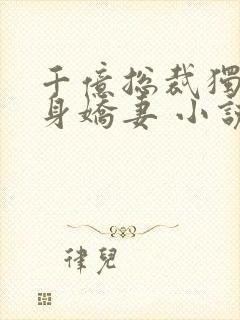 千億總裁獨
身嬌妻 小說
律兒